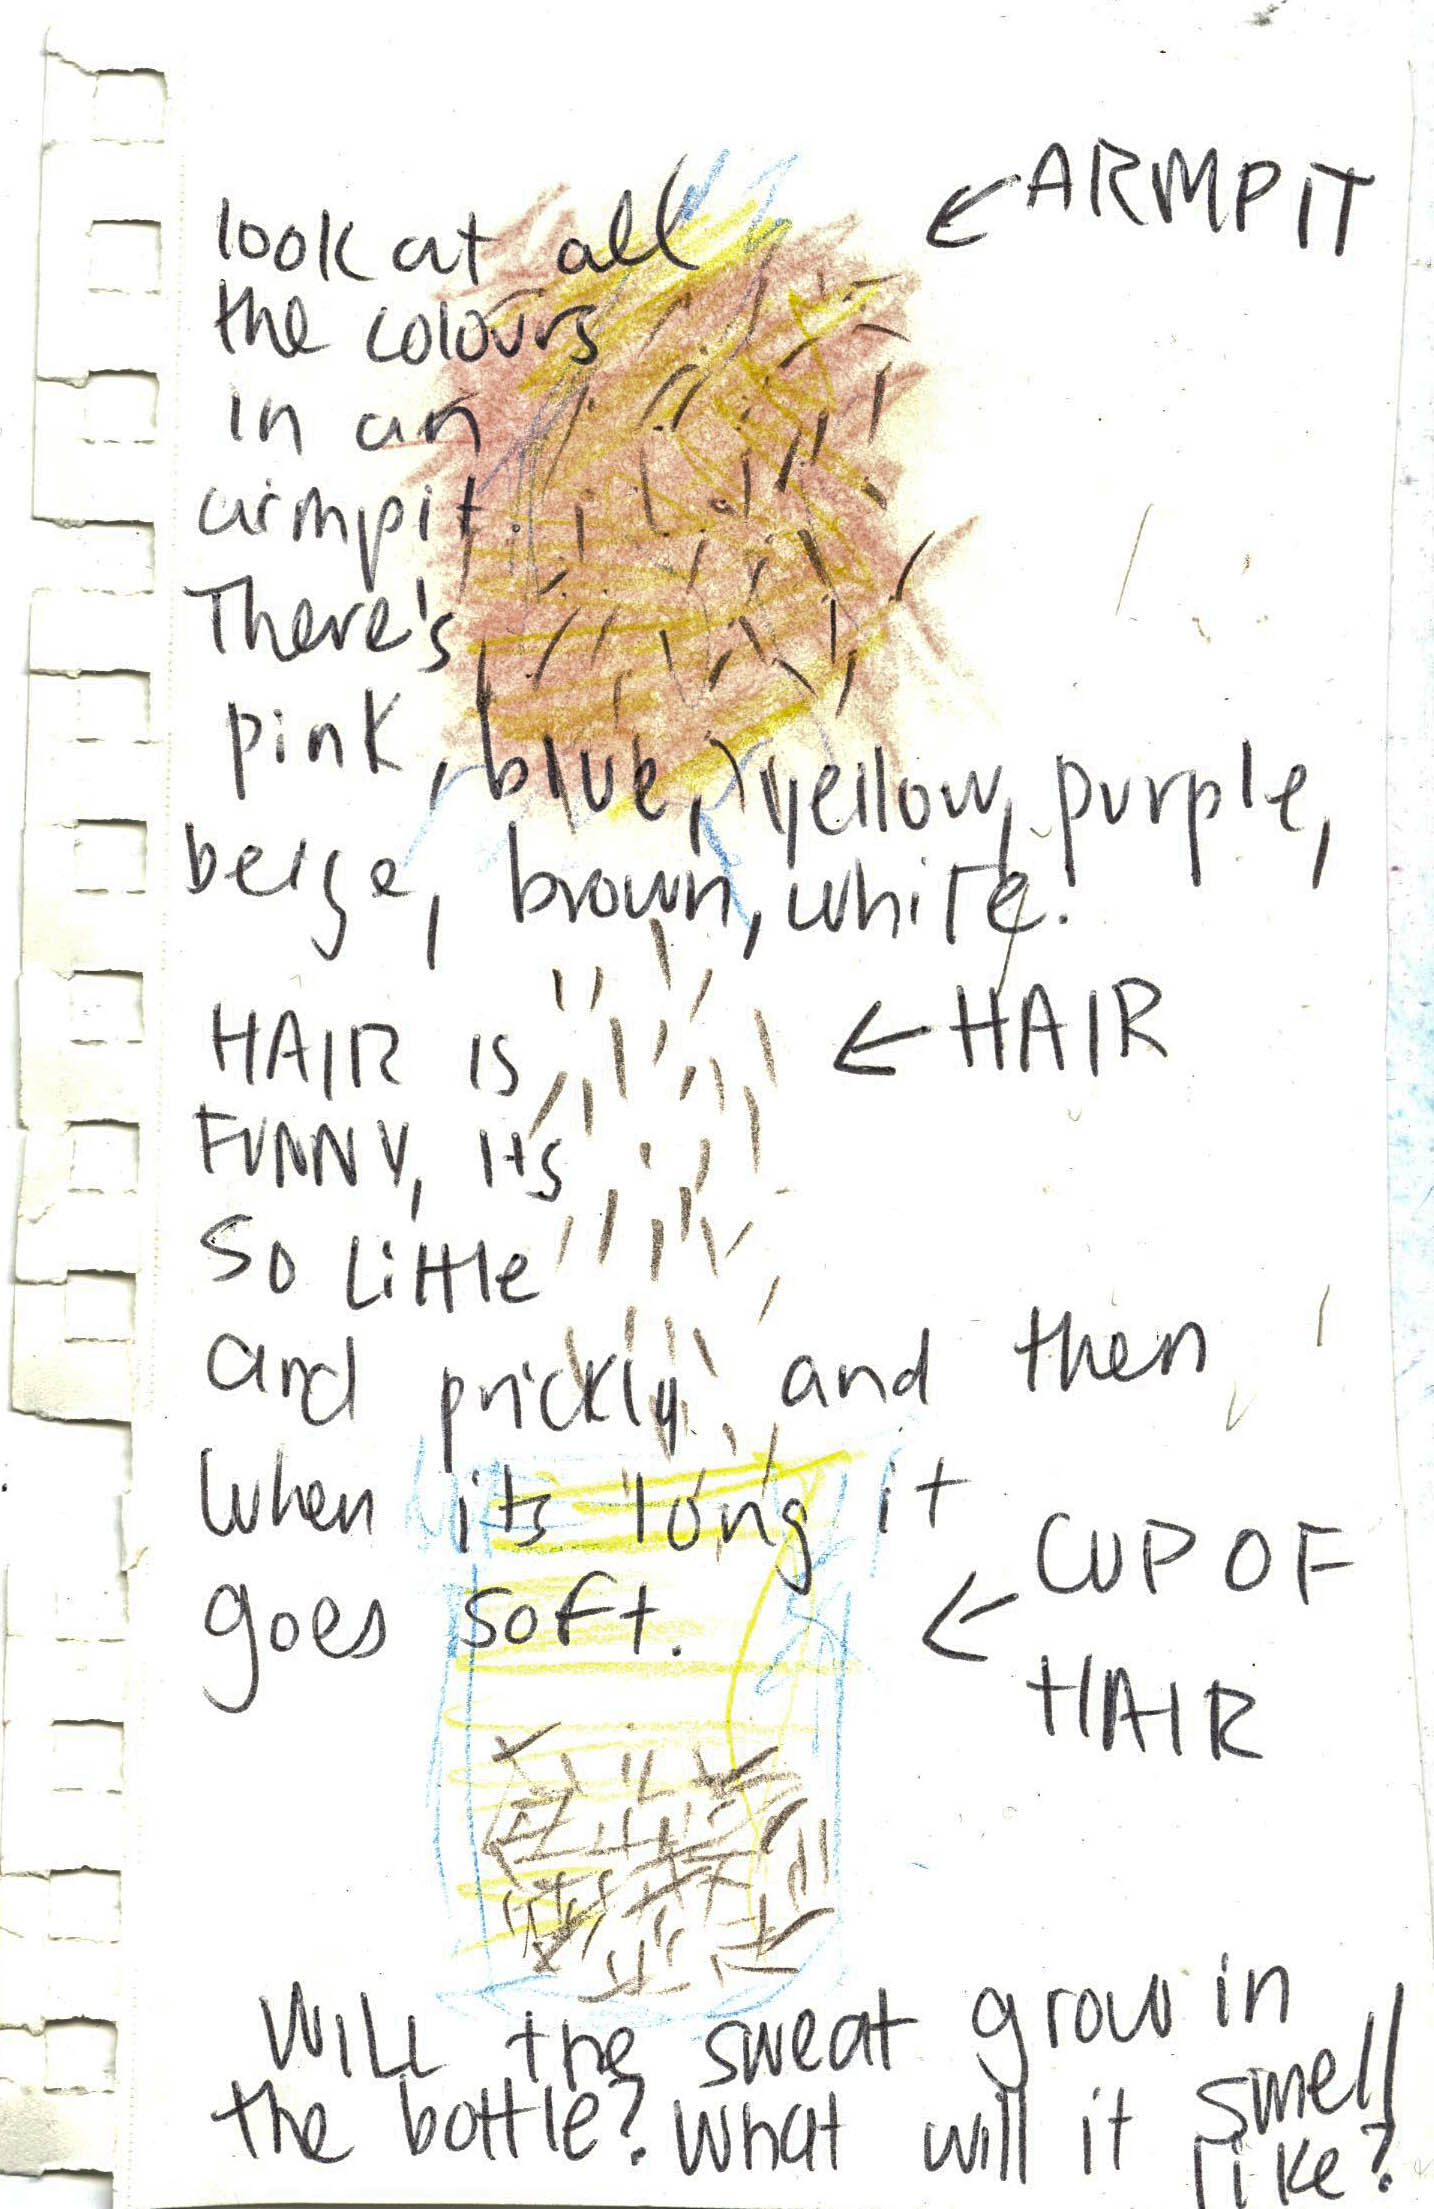 ARMPIT
look at all
the colours
in an
armpit.
There's
pink, blue, yellow, purple,
beige, brown, white!
HAIR
HAIR IS
FUNNY, ITS
SO LiTTle
and prickly and then
when its long it
goes soft.
CUP OF
HAIR
WILL the sweat grow in
the bottle? What will it smell
like?